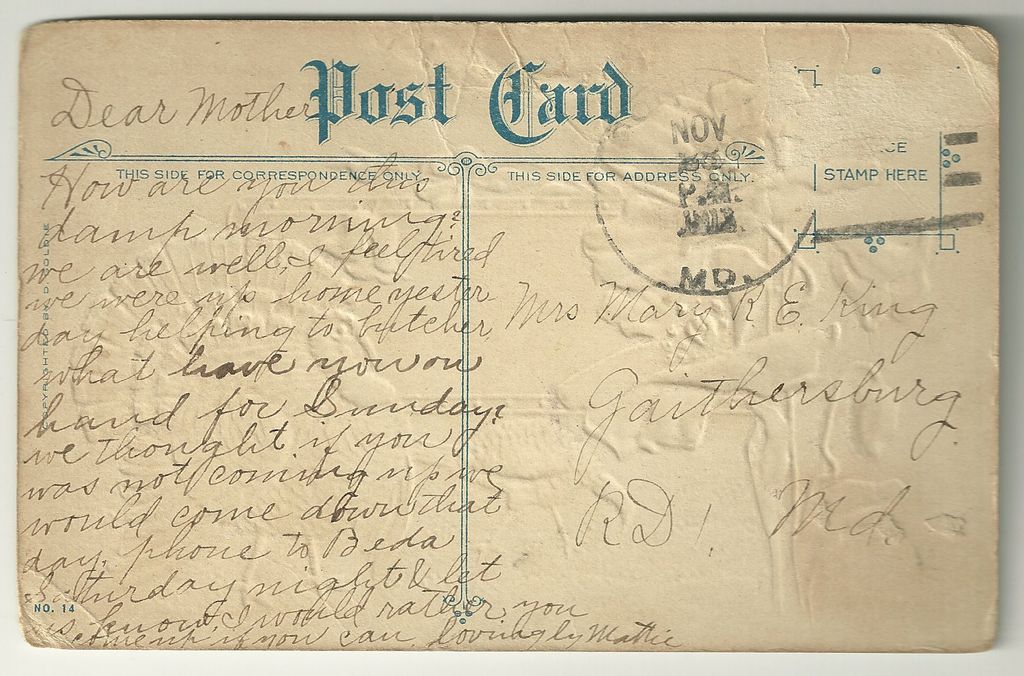 Post Card
THIS SIDE FOR CORRESPONDENCE ONLY.
THIS SIDE FOR ADDRESS ONLY.
CE
STAMP HERE
NOV
P.M.
MD.
Dear Mother
How are you this
damp morning?
we are well, I feel tired
we were up home yester
day helping to butcher
what have you on
hand for Sunday?
we thought if you
was not coming up we
would come down that
day, phone to Beda
Saturday night & let
us know, I would rather you
come up if you can, lovingly Mattie
Mrs Mary R. E. King
Gaithersburg
RD 1. Md.
NO. 14